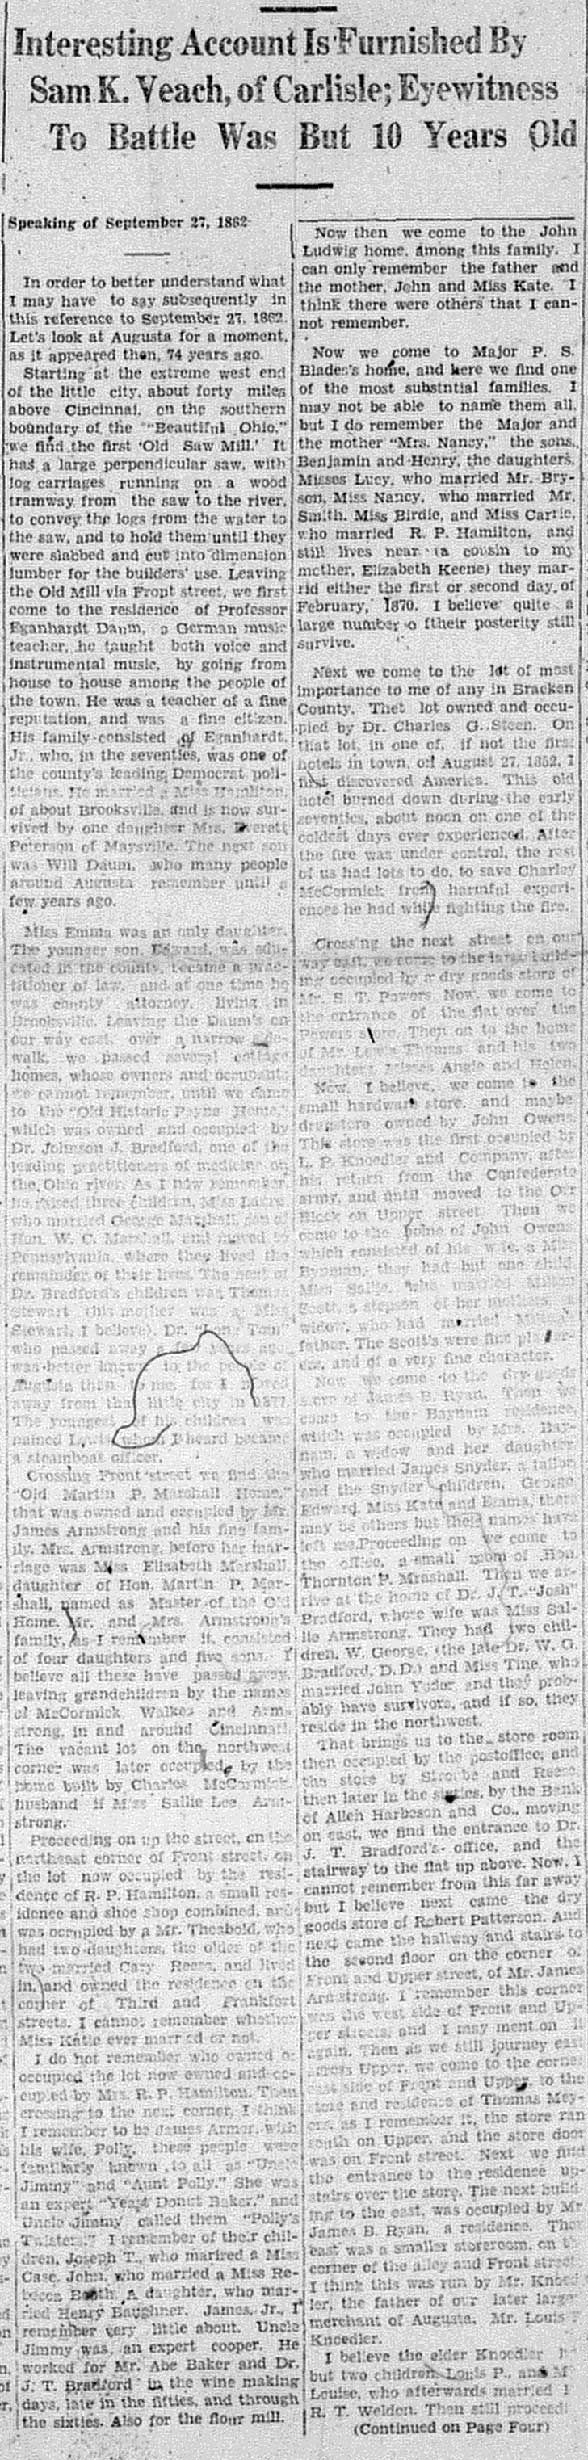 Interesting Account Is Furnished By
Sam K. Veach, of Carlisle; Eyewitness
To Battle Was But 10 Years Old
Speaking of September 27, 1862
In order to better understand what
I may have to say subsequently in
this reference to September 27, 1862.
Let's look at Augusta for a moment,
as it appeared then, 74 years ago.
Starting at the extreme west end
of the little city, about forty miles
above Cincinnai, on the southern
boundary of the "Beautiful Ohio,"
we find the first 'Old Saw Mill.' It
has a large perpendicular saw, with
log carriages running on a wood
tramway from the saw to the river,
to convey the logs from the water to
the saw, and to hold them until they
were slabbed and cut into dimension
lumber for the builders' use. Leaving
the Old Mill via Front street, we first
come to the residence of Professor
Eganhardt Daum, a German music
teacher, he taught both voice and
instrumental music, by going from
house to house among the people of
the town. He was a teacher of a fine
reputation, and was a fine citizen.
His family consisted of Eganhardt,
Jr., who, in the seventies, was one of
the county's leading Democrat poli-
ticians. He married a Miss Hamilton,
of about Brooksville, and is now sur-
vived by one daughter Mrs. Everett
Peterson of Maysville. The next son
was Will Daum, who many people
around Augusta remember until a
few years ago.
Miss Emma was an only daughter.
The younger son, Edward, was edu-
cated in the county, became a prac-
titioner of law, and at one time he
was county attorney, living in
Brooksville. Leaving the Daum's on
our way east, over a narrow
walk, we passed several cottage
homes, whose owners and occupants
we cannot remember, until we came
to the "Old Historic Payne Home,"
which was owned and occupied by
Dr. Johnson J. Bradford, one of the
leading practitioners of medicine on
the Ohio river. As I now remember,
he raised three children, Miss
who married George Marshall, son of
Hon. W. C. Marshall, and moved to
Pennsylvania, where they lived the
remainder of their lives. The next of
Dr. Bradford's children was Thomas
Stewart (his mother was a Miss
Stewart, I believe). Dr. Tom"
who passed away years ago
was better known to the people of
Augusta than to me, for I moved
away from that little city in 1877.
The youngest of his children was
named whom I heard became
a steamboat officer.
Crossing Front street we find the
"Old Martin P. Marshall Home,"
that was owned and occupied by Mr.
James Armstrong and his fine fam-
ily. Mrs. Armstrong, before her mar-
riage was Miss Elisabeth Marshall,
daughter of Hon. Martin P. Mar-
shall, named as Master of the Old
Home. Mr. and Mrs. Armstrong's
family, as I remember it, consisted
of four daughters and five sons. I
believe all these have passed away,
leaving grandchildren by the names
of McCormick Walkes and Arm-
strong, in and around Cincinnati.
The vacant lot on the northwest
corner was later occupied by the
home built by Charles McCormick
husband if Miss Sallie Lee Arm-
strong.
Proceeding on up the street, on the
northeast corner of Front street, on
the lot now occupied by the resi-
dence of R. P. Hamilton, a small res-
idence and shoe shop combined, and
was occupied by a Mr. Theabold, who
had two daughters, the older of the
two married Cary Reese, and lived
in, and owned the residence on the
corner of Third and Frankfort
streets. I cannot remember whether
Miss Katie ever married or not.
I do not remember who owned or
occupied the lot now owned and oc-
cupied by Mrs. R. P. Hamilton. Then
crossing to the next corner, I think
I remember to be James Armor, with
his wife, Polly, these people were
familiarly known to all as "Uncle
Jimmy" and "Aunt Polly." She was
an expert "Yeast Donut Baker," and
Uncle Jimmy called them "Polly's
Twisters." I remember of their chil-
dren, Joseph T., who marired a Miss
Case, John, who married a Miss Re-
becca Booth, A daughter, who mar-
ried Henry Baughner. James, Jr., I
remember very little about. Uncle
Jimmy was an expert cooper. He
worked for Mr. Abe Baker and Dr.
J. T. Bradford in the wine making
days, late in the fifties, and through
the sixties. Also for the flour mill.
Now then we come to the John
Ludwig home, among this family. I
can only remember the father and
the mother, John and Miss Kate. I
think there were others that I can-
not remember.
Now we come to Major P. S.
Blades's home, and here we find one
of the most substntial families. I
may not be able to name them all,
but I do remember the Major and
the mother "Mrs. Nancy," the sons,
Benjamin and Henry, the daughters,
Misses Lucy, who married Mr. Bry-
son, Miss Nancy, who married Mr.
Smith. Miss Birdie, and Miss Carrie,
who married R. P. Hamilton, and
still lives near (a cousin to my
mother, Elizabeth Keene) they mar-
rid either the first or second day of
February, 1870. I believe quite a
large number o ftheir posterity still
survive.
Next we come to the lot of most
importance to me of any in Bracken
County. Thet lot owned and occu-
pied by Dr. Charles G. Steen. On
that lot, in one of, if not the first
hotels in town, on August 27, 1852, I
first discovered America. This old
hotel burned down during the early
seventies, about noon on one of the
coldest days ever experienced. After
the fire was under control, the rest
of us had lots to do, to save Charley
McCormick from harmful experi-
ences he had while fighting the fire.
Crossing the next street on our
way east, we come to the large build-
ing occupied by a dry goods store of
Mr. S. T. Powers. Now, we come to
the entrance of the flat over the
Powers store. Then on to the home
of Mr. Lewis Thomas, and his two
daughters, Misses Angie and Helen.
Now, I believe, we come to the
small hardware store, and maybe
drugstore owned by John Owens.
This store was the first occupied by
L. P. Knoedler and Company, after
his return from the Confederate
army, and until moved to the
Block on Upper street. Then we
come to the home of John Owens,
which consisted of his wife, a Miss
they had but one child
Miss Sallie, who married
Scott, a stepson of her mother's, a
widow, who had married
father. The Scott's were fine
and of a very fine character.
Now we come to the dry goods
store of James B. Ryan. Then we
come to the Baynam residence,
which was occupied by Mrs. Bay-
nam, a widow and her daughter
who married James Snyder, a tailor
and the Snyder children, George
Edward, Miss Kate and Emma, there
may be others but their names have
left me. Proceeding on we come to
the office, a small room of Hon.
Thornton P. Mrashall. Then we ar-
rive at the home of Dr. J. T. "Josh"
Bradford, whose wife was Miss Sal-
lie Armstrong. They had two chil-
dren, W. George, (the late Dr. W. G.
Bradford, D.D.) and Miss Tine, who
married John Yoder and they prob-
ably have survivors, and if so, they
reside in the northwest.
That brings us to the store room
then occupied by the postoffice, and
the store by Strobe and Reese,
then later in the sixties, by the Bank
of Allen Harbeson and Co., moving
on east, we find the entrance to Dr.
J. T. Bradford's office, and the
stairway to the flat up above. Now, I
cannot remember from this far away
but I believe next came the dry
goods store of Robert Patterson. And
next came the hallway and stairs to
the second floor on the corner of
Front and Upper street, of Mr. James
Armstrong. I remember this corner
was the west side of Front and Up-
per streets, and I may mention it
again. Then as we still journey east
across Upper, we come to the corner
east side of Front and Upper, to the
store and residence of Thomas Mey-
ers, as I remember it, the store ran
south on Upper, and the store door
was on Front street. Next we find
the entrance to the residence up-
stairs over the store. The next build-
ing to the east, was occupied by Mr.
James B. Ryan, a residence. Then
east was a smaller storeroom, on the
corner of the alley and Front street
I think this was run by Mr. Knoed-
ler, the father of our later large
merchant of Augusta, Mr. Louis P.
Knoedler.
I believe the elder Knoedler
but two children, Louis P., and
Louise, who afterwards married
R. T. Weldon. Then still proceed
(Continued on Page Four)